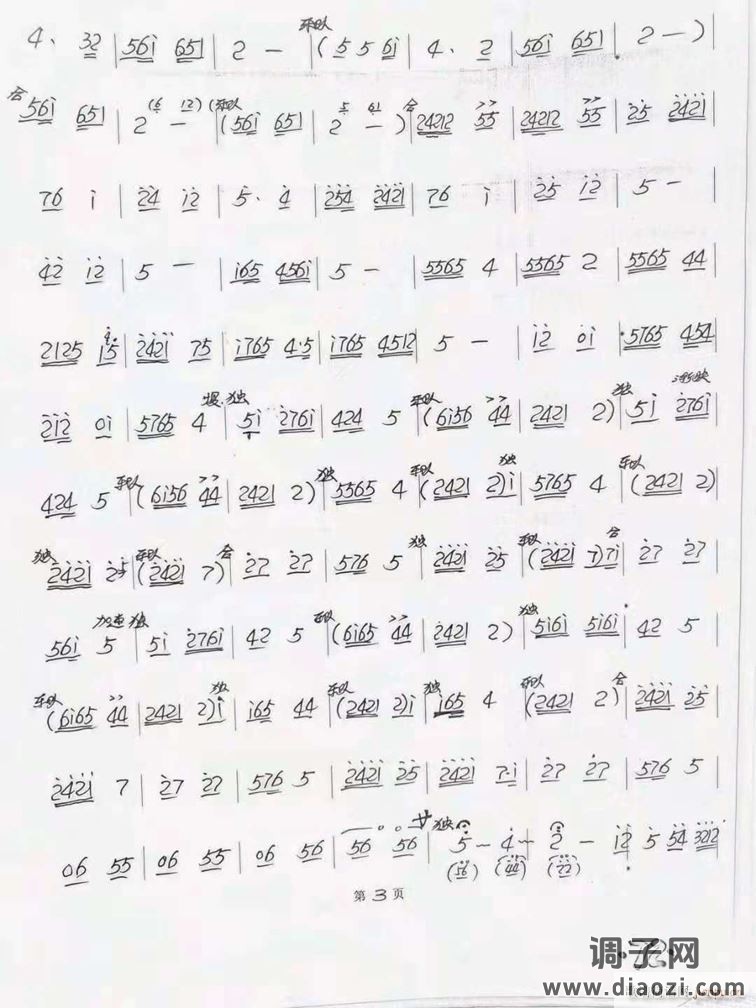 4. 32 | 561 651 | 2 - | 乐队 (5 5 6i | 4. 2 | 56i 651 | 2 -) |
合 56i 651 | 2 (6 i2) - | (乐队 (56i 651 | 2 5 61 - ) | 合 24212 >> 55 | 24212 >> 55 | 25 2421 |
76 i | 24 i2 | 5. 4 | 254 2421 | 76 i | 25 i2 | 5 - |
42 i2 | 5 - | i65 456i | 5 - | 5565 4 | 5565 2 | 5565 44 |
2125 i5 | 2421 75 | i765 4.5 | i765 4512 | 5 - | i2 0i | 5765 454 |
2i2 0i | 5765 4 | 慢 独 5i 276i | 424 5 | 乐队 (6i56 >> 44 | 2421 2) | 独 5i 渐快 276i |
424 5 | 乐队 (6i56 >> 44 | 2421 2) | 独 5565 4 | 乐队 (2421 2) 独 i | 5765 4 | 乐队 (2421 2)
独 2421 25 | 乐队 (2421 7) | 合 27 27 | 576 5 | 独 2421 25 | 乐队 (2421 7) 7i | 合 27 27 |
56i 5 | 加速 独 5i 276i | 42 5 | 乐队 (6i65 >> 44 | 2421 2) | 独 5i6i 5i6i | 42 5 |
乐队 (6i65 >> 44 | 2421 2) 独 i | i65 44 | 乐队 (2421 2) i | 独 i65 4 | 乐队 (2421 2) | 合 2421 25 |
2421 7 | 27 27 | 576 5 | 2421 25 | 2421 7.i | 27 27 | 576 5 |
06 55 | 06 55 | 06 56 | 56 56 | 艹 独 5 ~ 4 ~ 2 - i2 5 54 3212 |
(56) (44) (22)
第 3 页
调子网
www.diaozi.com